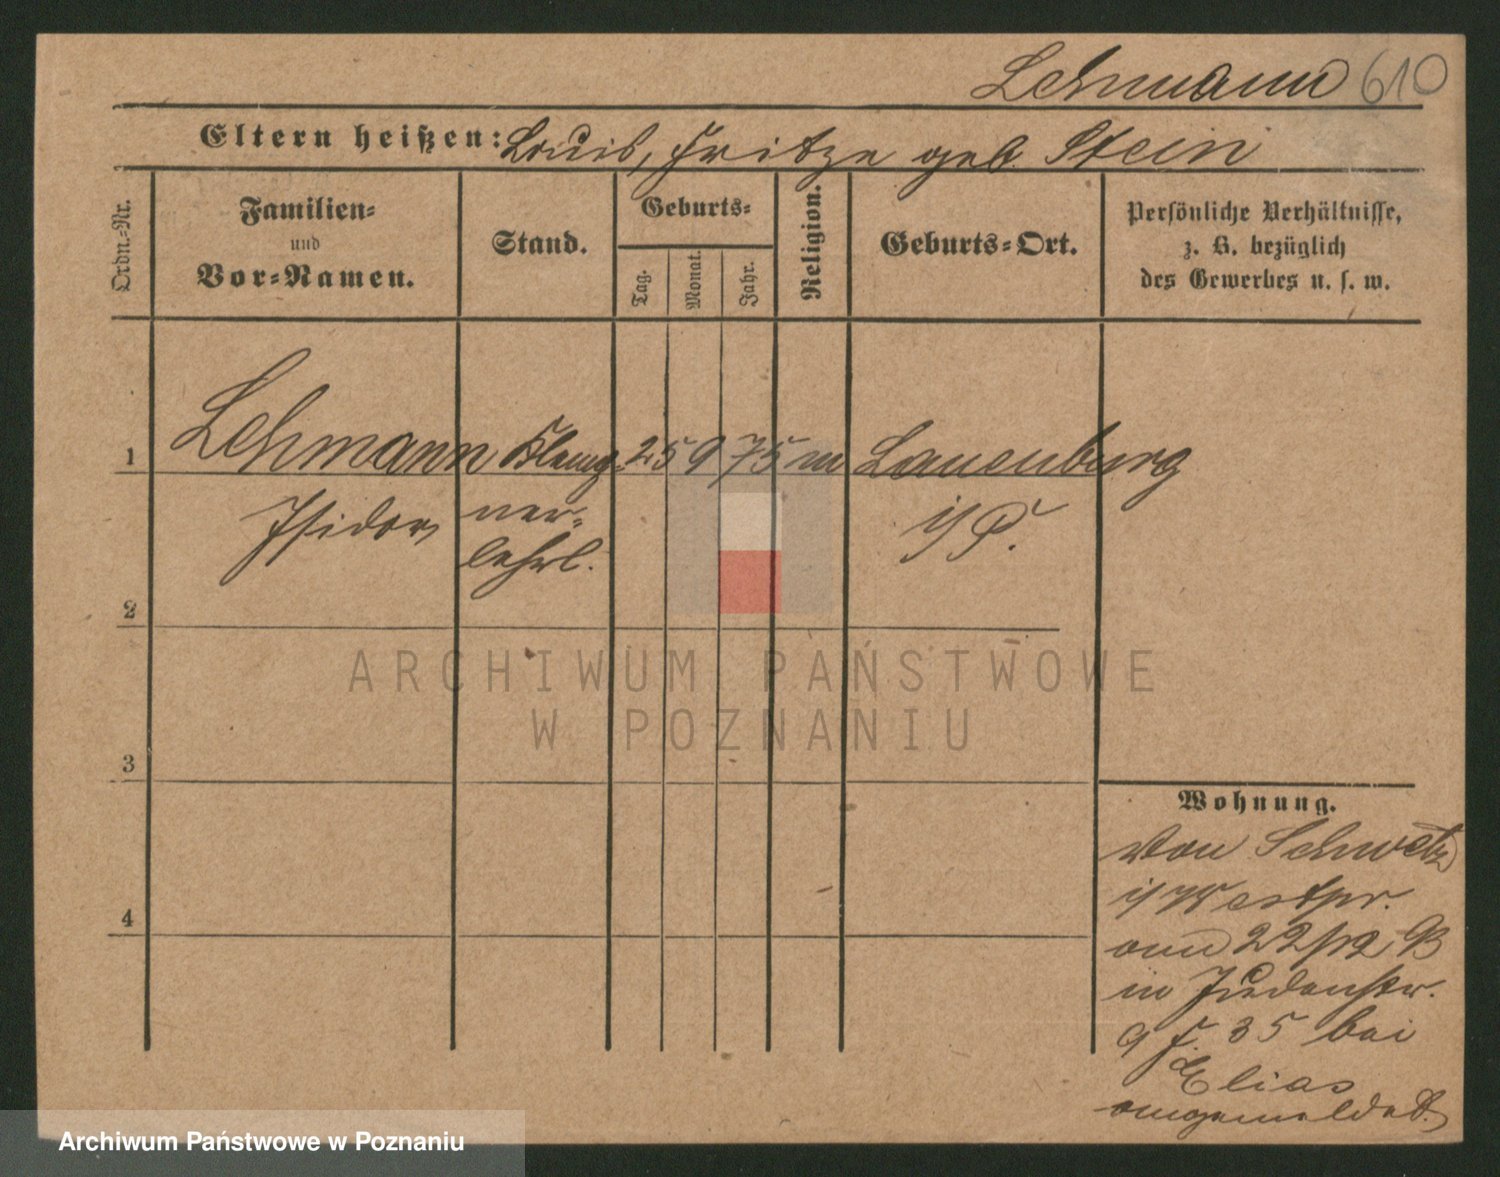 Lehmann 610
Eltern heißen: Louis, Fritze geb. Stein
Ordn.-Nr.
Familien-
und
Vor-Namen.
Stand.
Geburts-
Tag.
Monat.
Jahr.
Religion.
Geburts-Ort.
Persönliche Verhältnisse,
z. B. bezüglich
des Gewerbes u. s. w.
1 Lehmann Klemp- 25 9 75 m Lauenburg
Isidor ner- i/P.
lehrl.
2
ARCHIWUM PAŃSTWOWE
W POZNANIU
3
4
Wohnung.
Von Schwetz
i/Westpr.
am 22/12 93
in Judenstr.
35 bei
Elias
angemeldet.
Archiwum Państwowe w Poznaniu